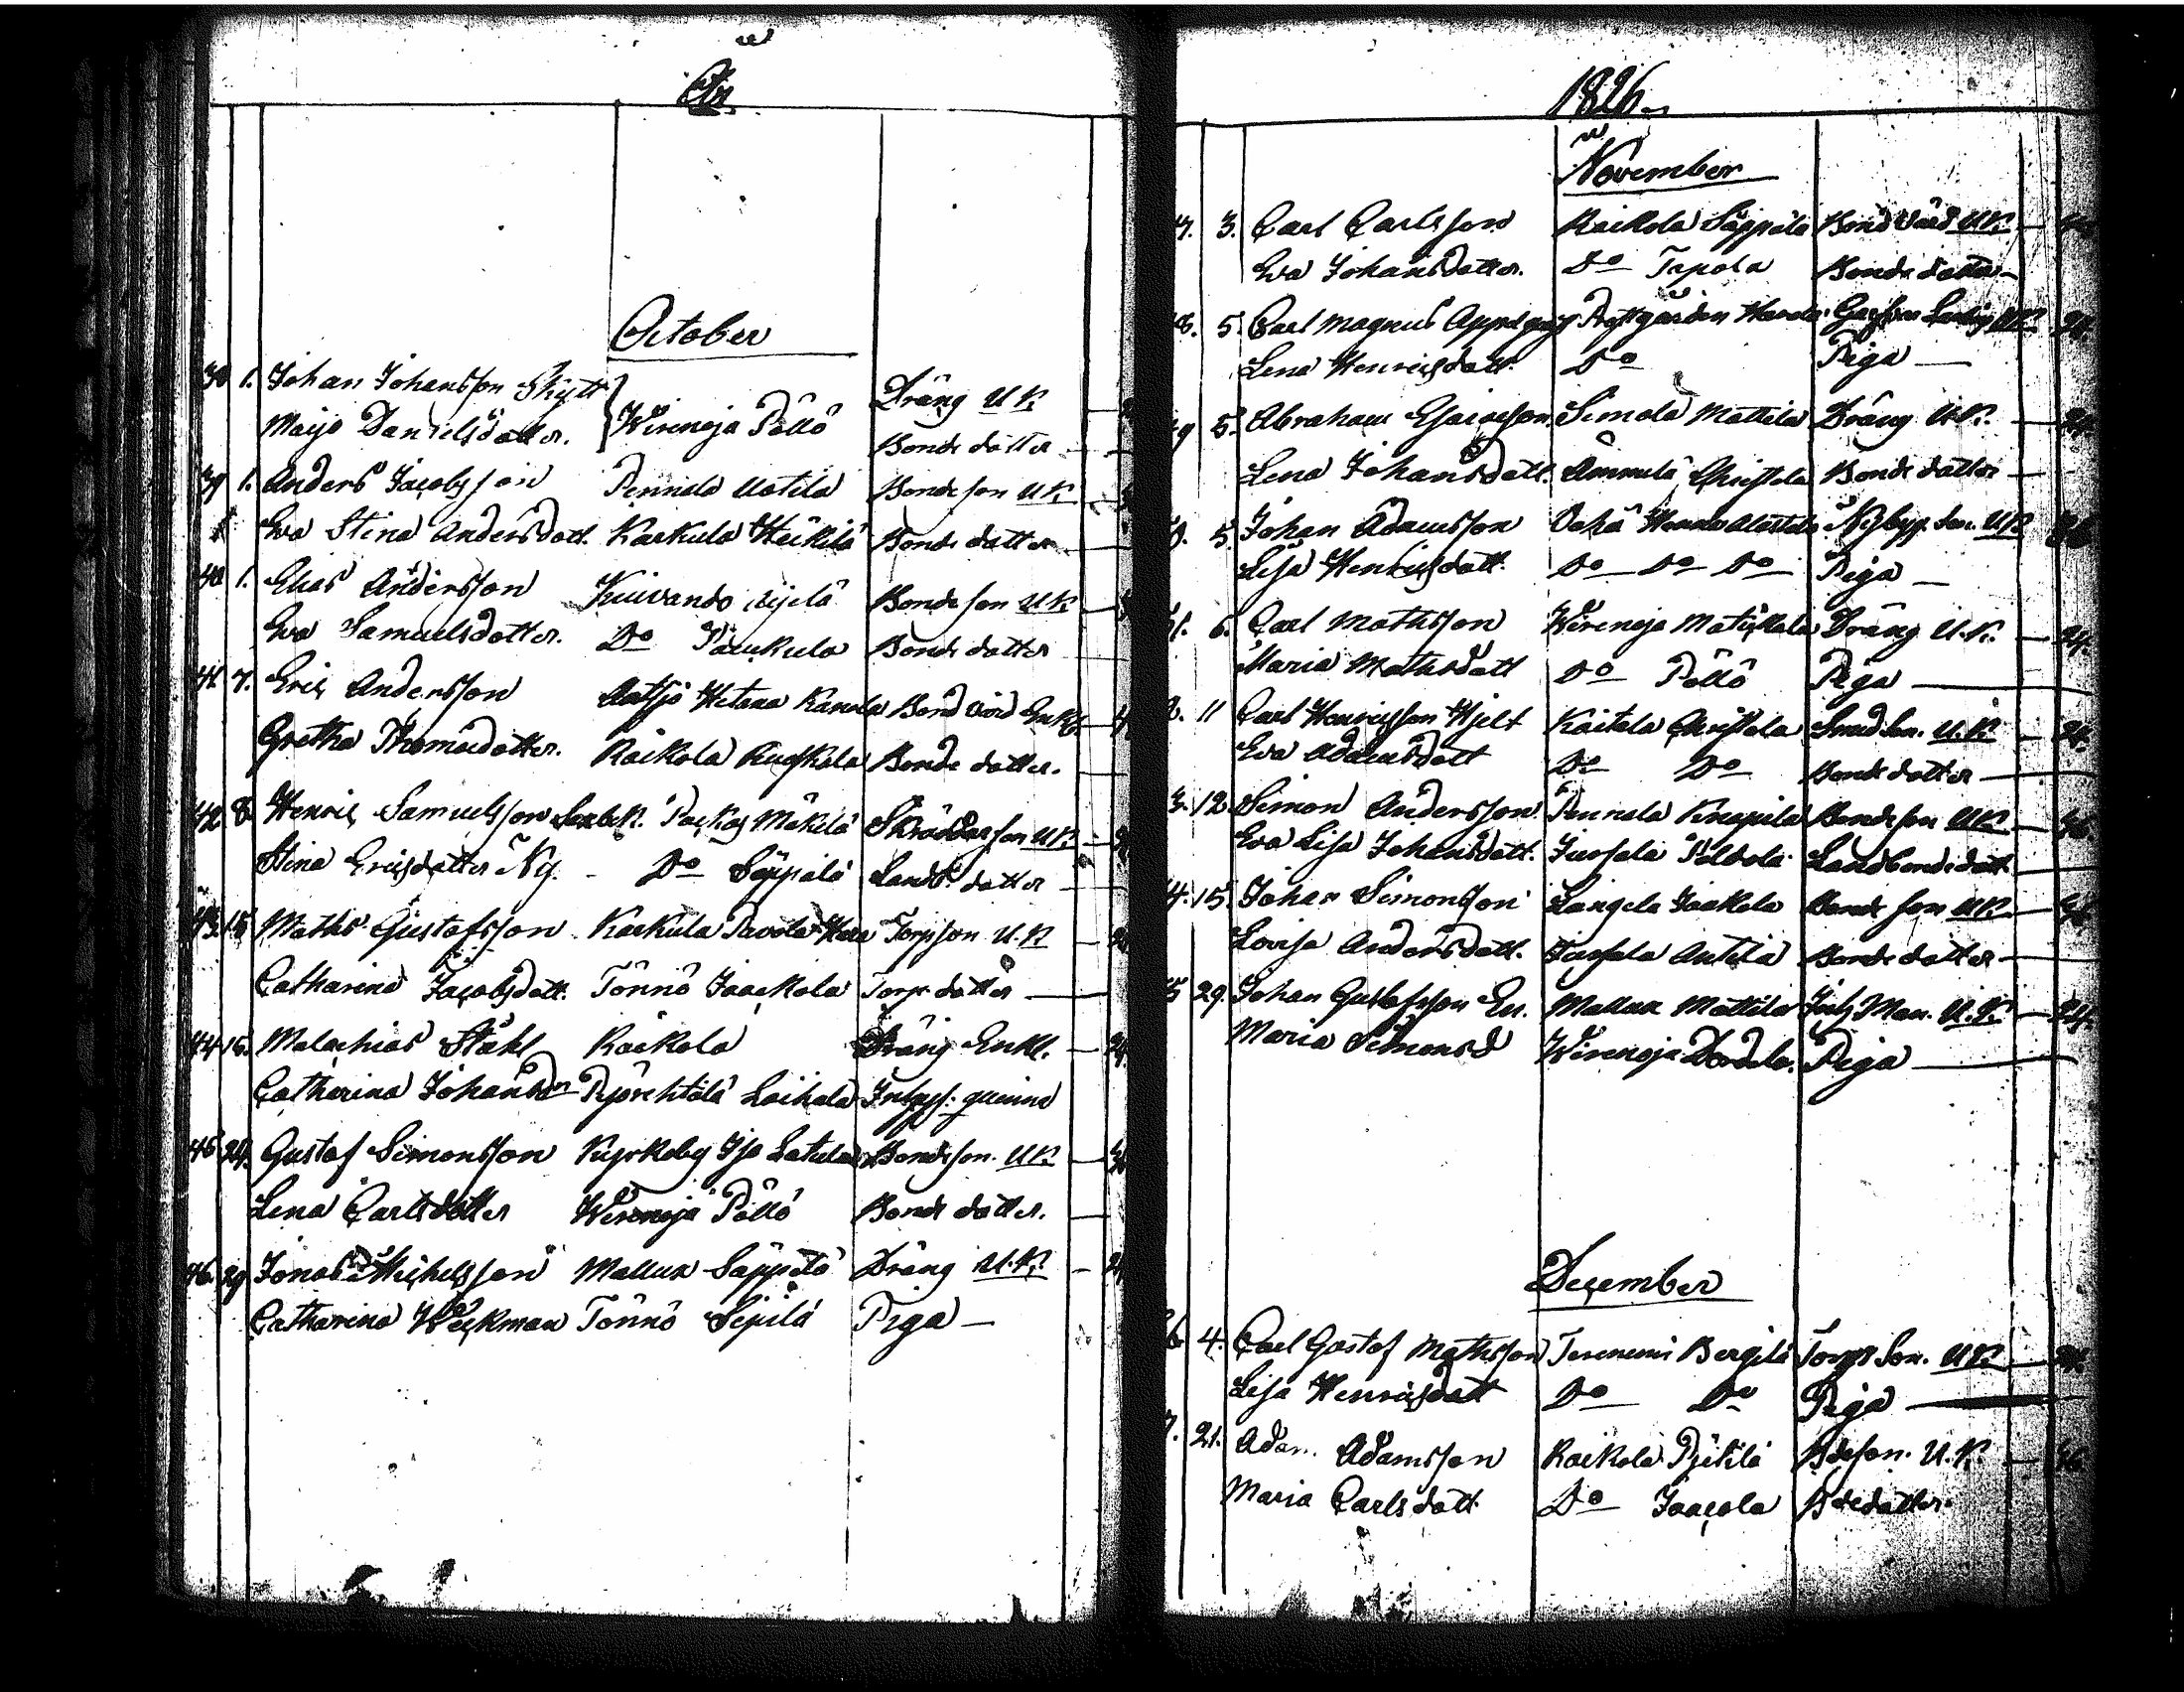 År
October
38 1. Johan Johansson Skytt Wirenoja Pöllö Dräng U.K.
Maija Danielsdotter. Bonde dotter
39 1. Anders Jacobsson Pennala Uotila Bondeson U.K.
Eva Stina Andersdott. Karkula Heikilä Bonde dotter
40 1. Elias Andersson Kuivando Bondeson U.K.
Eva Samuelsdotter. Do Paukula Bonde dotter
41. 7. Eric Andersson Bondvärd Enkl.
Gretha Thomasdotter. Raikola Bonde dotter.
42 8. Henric Samuelsson Mäkilä Skräddarson U.K.
Stina Ericsdotter Ny. Do Säppälä Landb. dotter
43. 15 Mathis Gustafsson Karkula Pavola Torpson U.K.
Catharina Jacobsdott. Tönnö Jaackola Torp. dotter
44 15. Malachias Ståhl Raikola Dräng Enkl.
Catharina Johansdr Laikala qvinna
45 24. Gustaf Simonsson Kyrkoby Iso Latula Bondeson. U.K.
Lena Carlsdotter Wirenoja Pöllö Bonde dotter.
46. 29 Jonas Michelsson Mallux Säppälä Dräng U.K.
Catharina Weckman Tönnö Sipilä Piga
1826.
November
47. 3. Carl Carlsson Raikola Säppälä Bondvärd U.K.
Eva Johansdotter. Do Tapola Bonde dotter
48. 5. Carl Magnus Prestgården U.K. 24.
Lena Henricsdott. Do Piga
49 5. Abraham Esaiasson Simola Mattila Dräng U.K. 24.
Lena Johansdott. Ammälä Christola Bonde dotter
50. 5. Johan Adamsson Vähä U.K.
Lisa Henricsdott. Do Do Do Piga
51. 6. Carl Mathsson Wirenoja Matickala Dräng U.K. 24.
Maria Mathsdott Do Pöllö Piga
2. 11 Carl Henricsson Hjelt Kaitala Christola Smed Son. U.K. 24.
Eva Adamsdott Do Do Bonde dotter
3. 12. Simon Andersson Pennala Knupila Bondeson U.K.
Eva Lisa Johansdott. Jussala Landbondedott.
4. 15. Johan Simonsson Längelä Jaakola Bonde son U.K.
Lovisa Andersdott. Jussala Antila Bonde dotter
5 29. Johan Gustafsson En. Mallux Mattila Man. U.K. 24.
Maria Simonsd Wirenoja Piga
December
6 4. Carl Gustaf Mathsson Terenemi Bergilä Torp. Son. U.K. 24.
Lisa Henricsdott Do Do Piga
7. 21. Adam Adamsson Raikola Bdeson. U.K.
Maria Carlsdott. Do Jaacola Bdedotter.